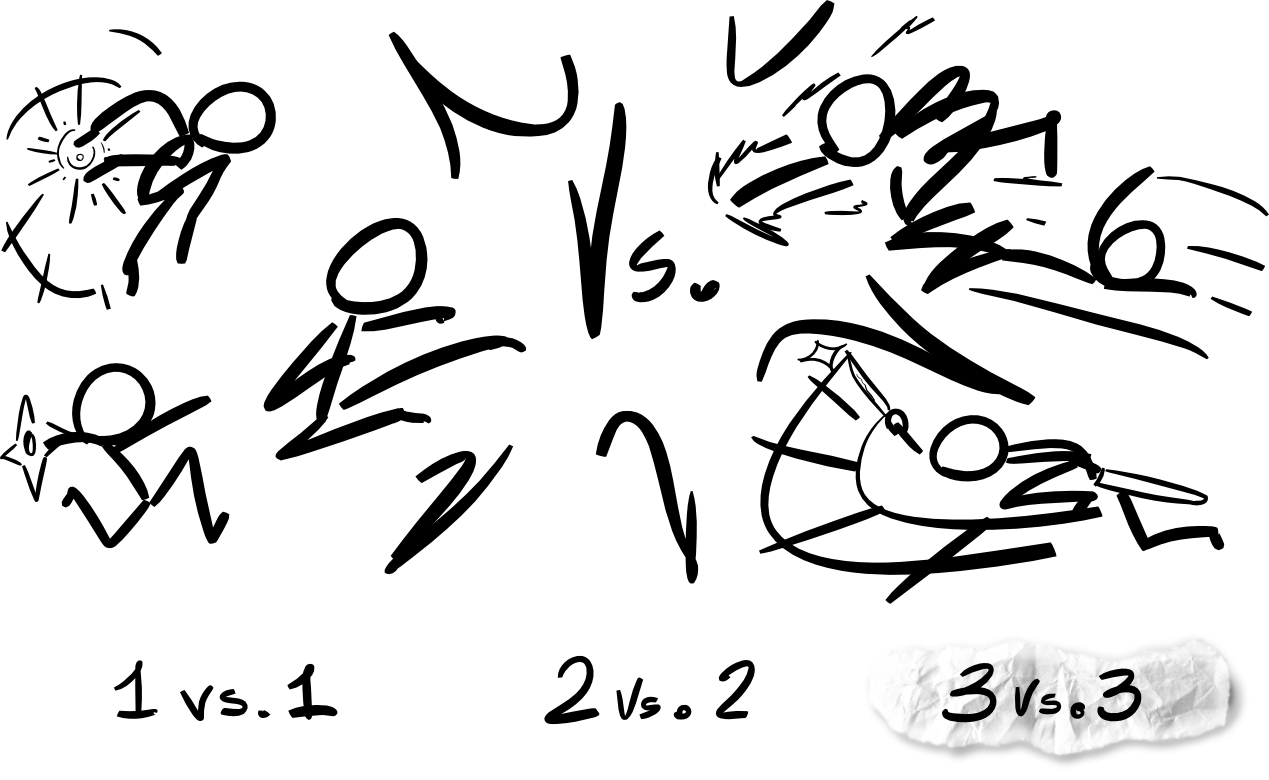 Vs.
1 vs. 1
2 vs. 2
3 vs. 3